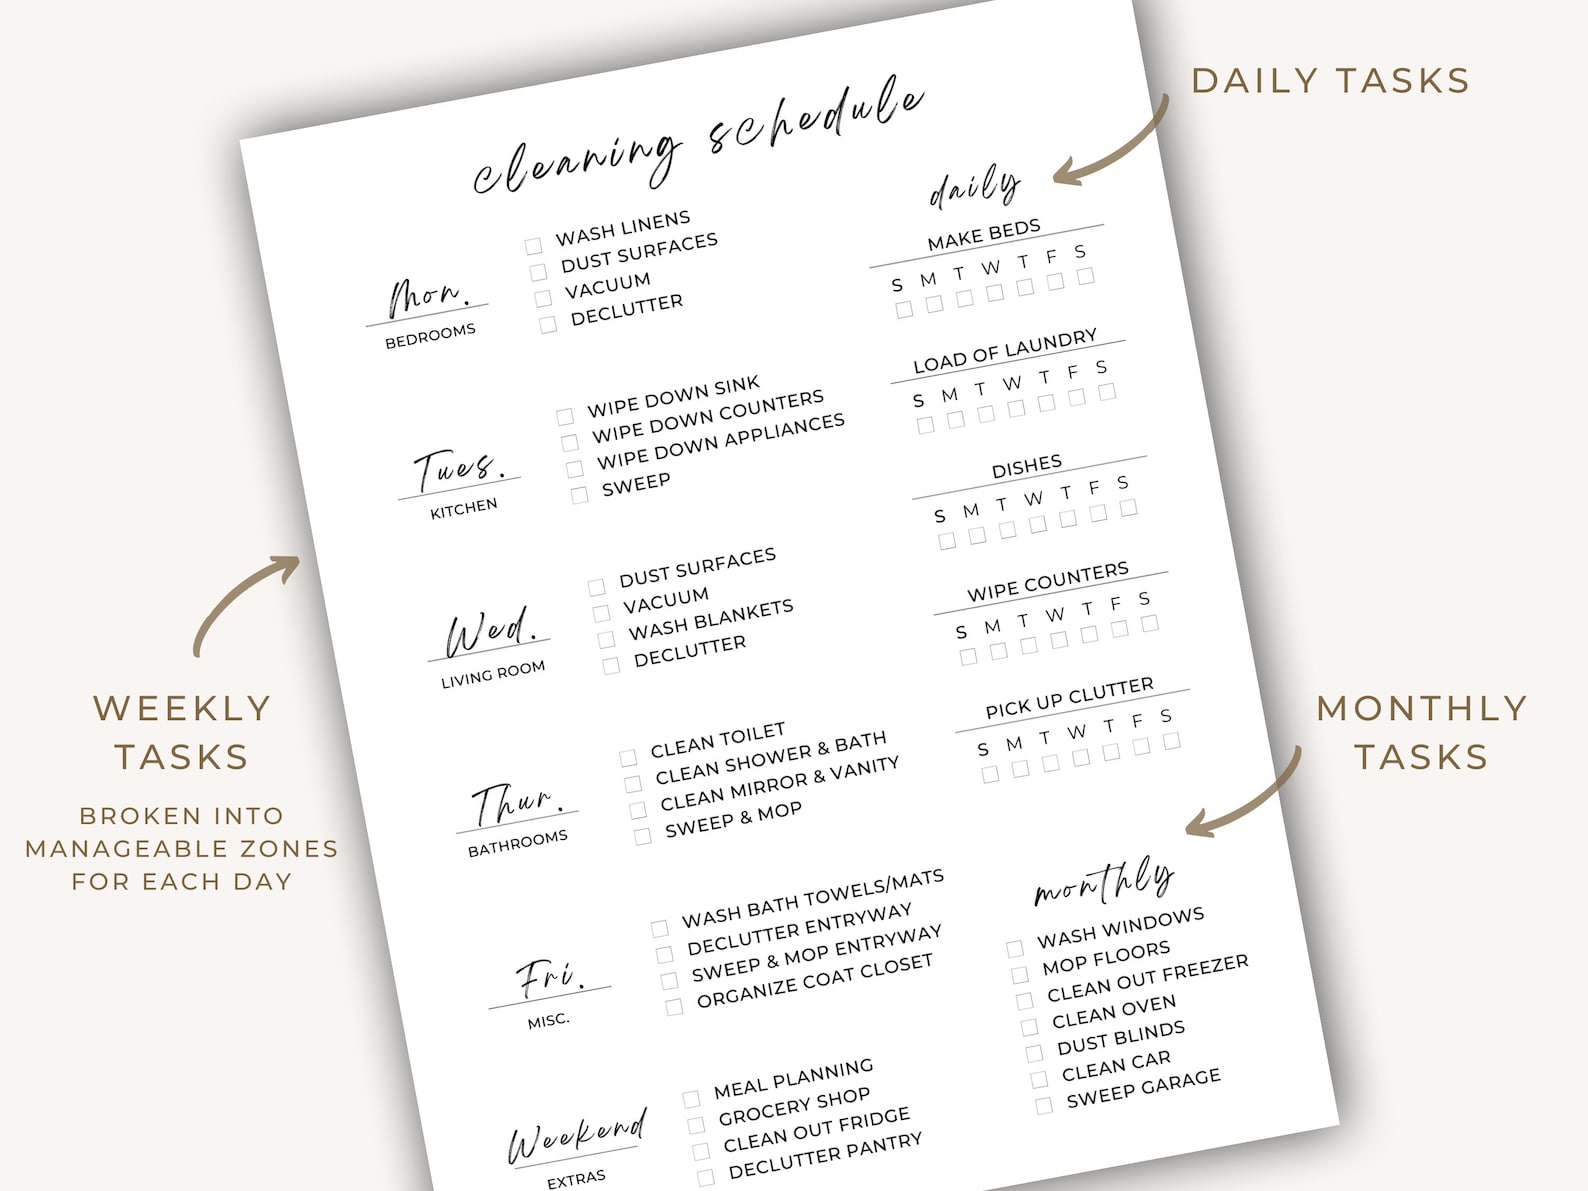 DAILY TASKS
cleaning schedule
Mon.
BEDROOMS
WASH LINENS
DUST SURFACES
VACUUM
DECLUTTER
Tues.
KITCHEN
WIPE DOWN SINK
WIPE DOWN COUNTERS
WIPE DOWN APPLIANCES
SWEEP
Wed.
LIVING ROOM
DUST SURFACES
VACUUM
WASH BLANKETS
DECLUTTER
Thur.
BATHROOMS
CLEAN TOILET
CLEAN SHOWER & BATH
CLEAN MIRROR & VANITY
SWEEP & MOP
Fri.
MISC.
WASH BATH TOWELS/MATS
DECLUTTER ENTRYWAY
SWEEP & MOP ENTRYWAY
ORGANIZE COAT CLOSET
Weekend
EXTRAS
MEAL PLANNING
GROCERY SHOP
CLEAN OUT FRIDGE
DECLUTTER PANTRY
daily
MAKE BEDS
S M T W T F S
LOAD OF LAUNDRY
S M T W T F S
DISHES
S M T W T F S
WIPE COUNTERS
S M T W T F S
PICK UP CLUTTER
S M T W T F S
monthly
WASH WINDOWS
MOP FLOORS
CLEAN OUT FREEZER
CLEAN OVEN
DUST BLINDS
CLEAN CAR
SWEEP GARAGE
WEEKLY
TASKS
BROKEN INTO
MANAGEABLE ZONES
FOR EACH DAY
MONTHLY
TASKS